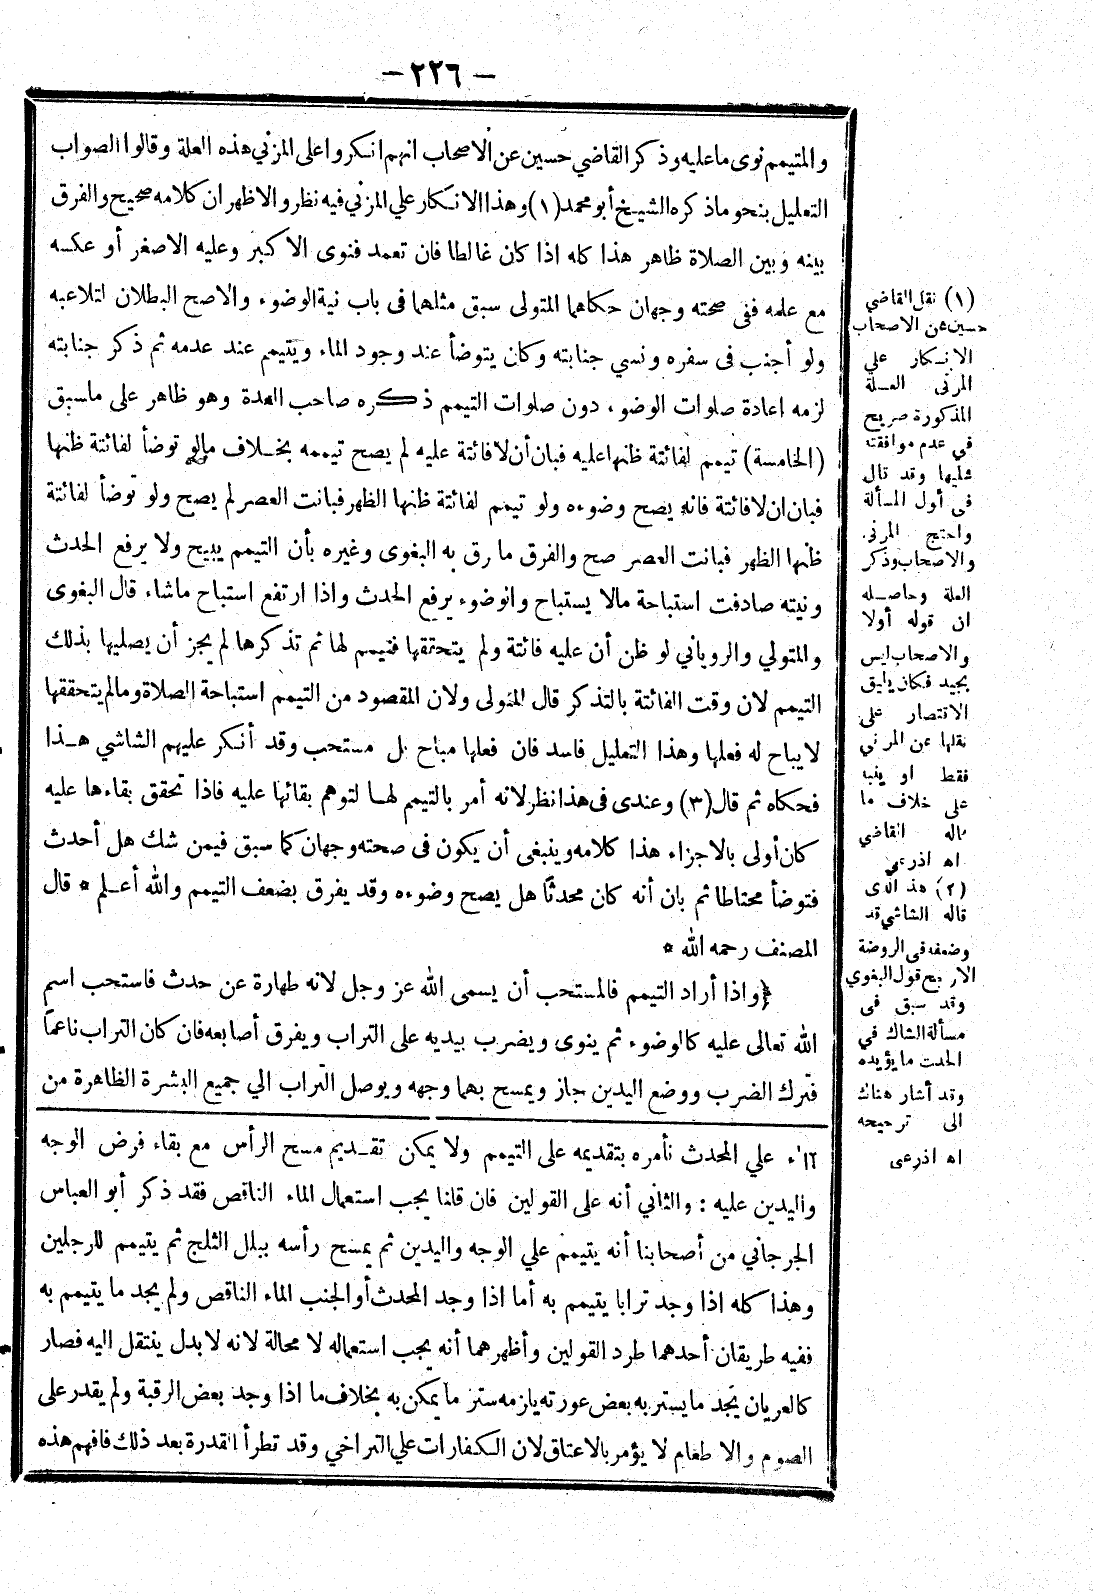 — ٢٢٦ —
والمتيمم نوى ما عليه وذكر القاضي حسين عن الاصحاب انهم انكروا على المزني هذه العلة وقالوا الصواب
التعليل بنحو ما ذكره الشيخ أبو محمد (١) وهذا الانكار علي المزني فيه نظر والاظهر ان كلامه صحيح والفرق
بينه وبين الصلاة ظاهر هذا كله اذا كان غالطا فان تعمد فنوى الاكبر وعليه الاصغر أو عكسه
مع علمه ففى صحته وجهان حكاهما المتولى سبق مثلهما فى باب نية الوضوء والاصح البطلان لتلاعبه
ولو أجنب فى سفره ونسي جنابته وكان يتوضأ عند وجود الماء ويتيمم عند عدمه ثم ذكر جنابته
لزمه اعادة صلوات الوضوء دون صلوات التيمم ذكره صاحب العدة وهو ظاهر على ماسبق
(الخامسة) تيمم لفائتة ظنها عليه فبان أن لا فائتة عليه لم يصح تيممه بخلاف مالو توضأ لفائتة ظنها
فبان ان لا فائتة فانه يصح وضوءه ولو تيمم لفائتة ظنها الظهر فبانت العصر لم يصح ولو توضأ لفائتة
ظنها الظهر فبانت العصر صح والفرق ما رق به البغوى وغيره بأن التيمم يبيح ولا يرفع الحدث
ونيته صادفت استباحة مالا يستباح والوضوء يرفع الحدث واذا ارتفع استباح ماشاء قال البغوى
والمتولي والروياني لو ظن أن عليه فائتة ولم يتحققها فتيمم لها ثم تذكرها لم يجز أن يصليها بذلك
التيمم لان وقت الفائتة بالتذكر قال المتولى ولان المقصود من التيمم استباحة الصلاة ومالم يتحققها
لا يباح له فعلها وهذا التعليل فاسد فان فعلها مباح بل مستحب وقد أنكر عليهم الشاشي هذا
فحكاه ثم قال (٣) وعندى فى هذا نظر لانه أمر بالتيمم لها لتوهم بقائها عليه فاذا تحقق بقاءها عليه
كان أولى بالاجزاء هذا كلامه وينبغى أن يكون فى صحته وجهان كما سبق فيمن شك هل أحدث
فتوضأ محتاطا ثم بان أنه كان محدثًا هل يصح وضوءه وقد يفرق بضعف التيمم والله أعلم * قال
المصنف رحمه الله *
﴿واذا أراد التيمم فالمستحب أن يسمى الله عز وجل لانه طهارة عن حدث فاستحب اسم
الله تعالى عليه كالوضوء ثم ينوى ويضرب بيديه على التراب ويفرق أصابعه فان كان التراب ناعمًا
فترك الضرب ووضع اليدين جاز ويمسح بهما وجهه ويوصل التراب الي جميع البشرة الظاهرة من
الماء علي المحدث نأمره بتقديمه على التيمم ولا يمكن تقديم مسح الرأس مع بقاء فرض الوجه
واليدين عليه : والثاني أنه على القولين فان قلنا يجب استعمال الماء الناقص فقد ذكر أبو العباس
الجرجاني من أصحابنا أنه يتيمم علي الوجه واليدين ثم يمسح رأسه ببلل الثلج ثم يتيمم للرجلين
وهذا كله اذا وجد ترابا يتيمم به أما اذا وجد المحدث أو الجنب الماء الناقص ولم يجد ما يتيمم به
ففيه طريقان أحدهما طرد القولين وأظهرهما أنه يجب استعماله لا محالة لانه لا بدل ينتقل اليه فصار
كالعريان يجد ما يستر به بعض عورته يلزمه ستر ما يمكن به بخلاف ما اذا وجد بعض الرقبة ولم يقدر على
الصوم والاطعام لا يؤمر بالاعتاق لان الكفارات علي التراخي وقد تطرأ القدرة بعد ذلك فافهم هذه
(١) نقل القاضي
حسين عن الاصحاب
الانكار علي
المزنى العلة
المذكورة صريح
في عدم موافقته
عليها وقد قال
فى أول المسألة
واحتج المزني
والاصحاب وذكر
العلة وحاصله
ان قوله أولا
والاصحاب ليس
بجيد فكان يليق
الاقتصار على
نقلها عن المزني
فقط او ينبه
على خلاف ما
قاله القاضي
اه اذرعى
(٢) هذا الذى
قاله الشاشي قد
وضعفه فى الروضة
الارجح قول البغوي
وقد سبق فى
مسألة الشاك في
الحدث ما يؤيده
وقد أشار هناك
الى ترجيحه
اه اذرعى